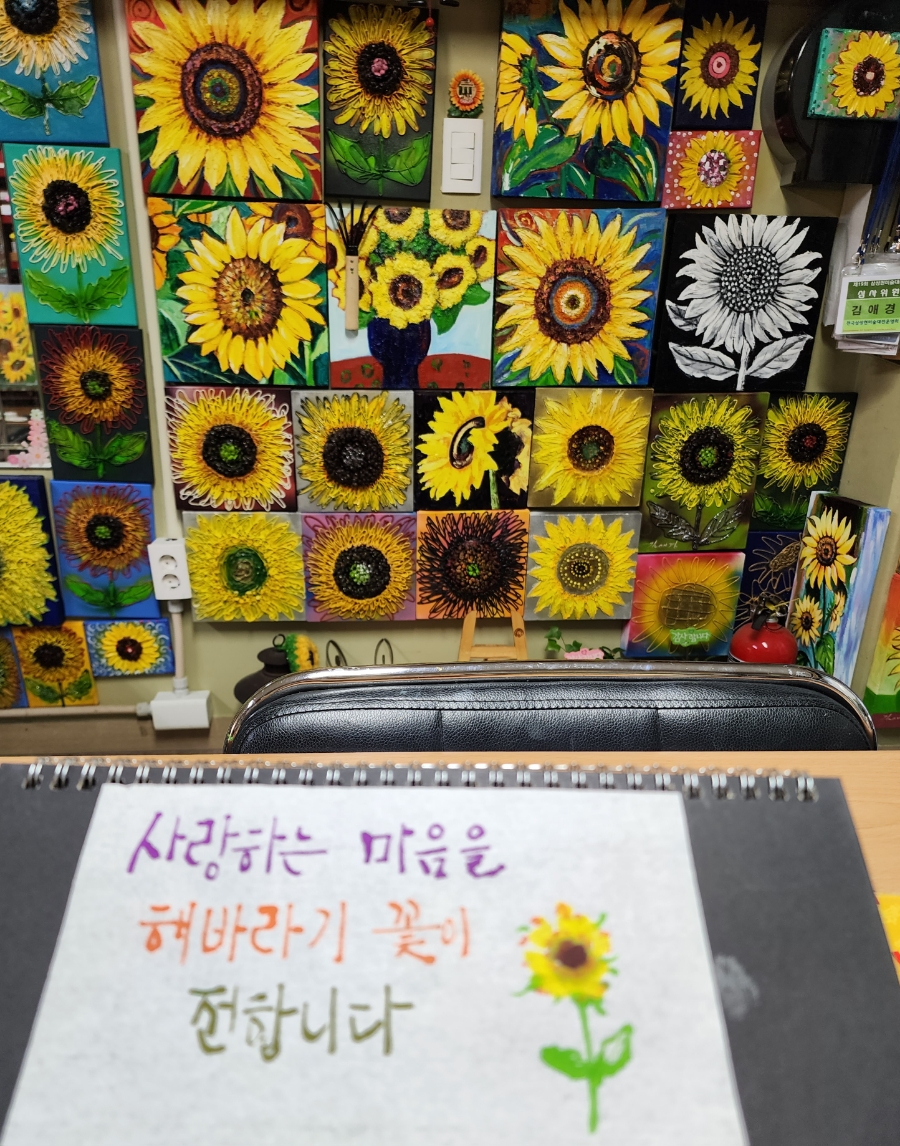 심사위원
김애경
사랑하는 마음을
해바라기 꽃이
전합니다